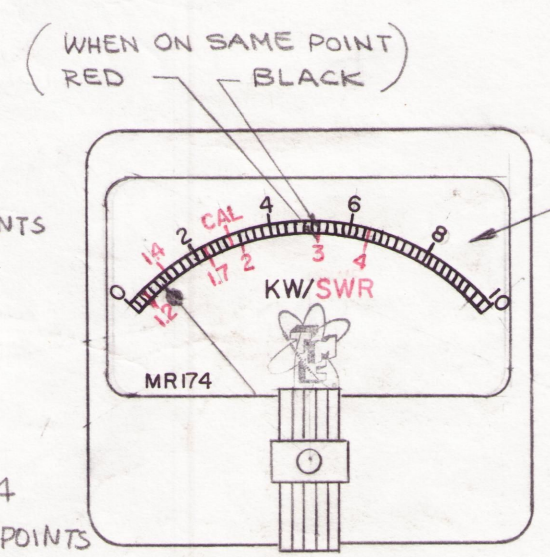 (WHEN ON SAME POINT)
RED BLACK
NTS
CAL
0 2 4 6 8 10
1.4
1.2 1.7 2 3 4
KW/SWR
TMC
MR174
4
POINTS